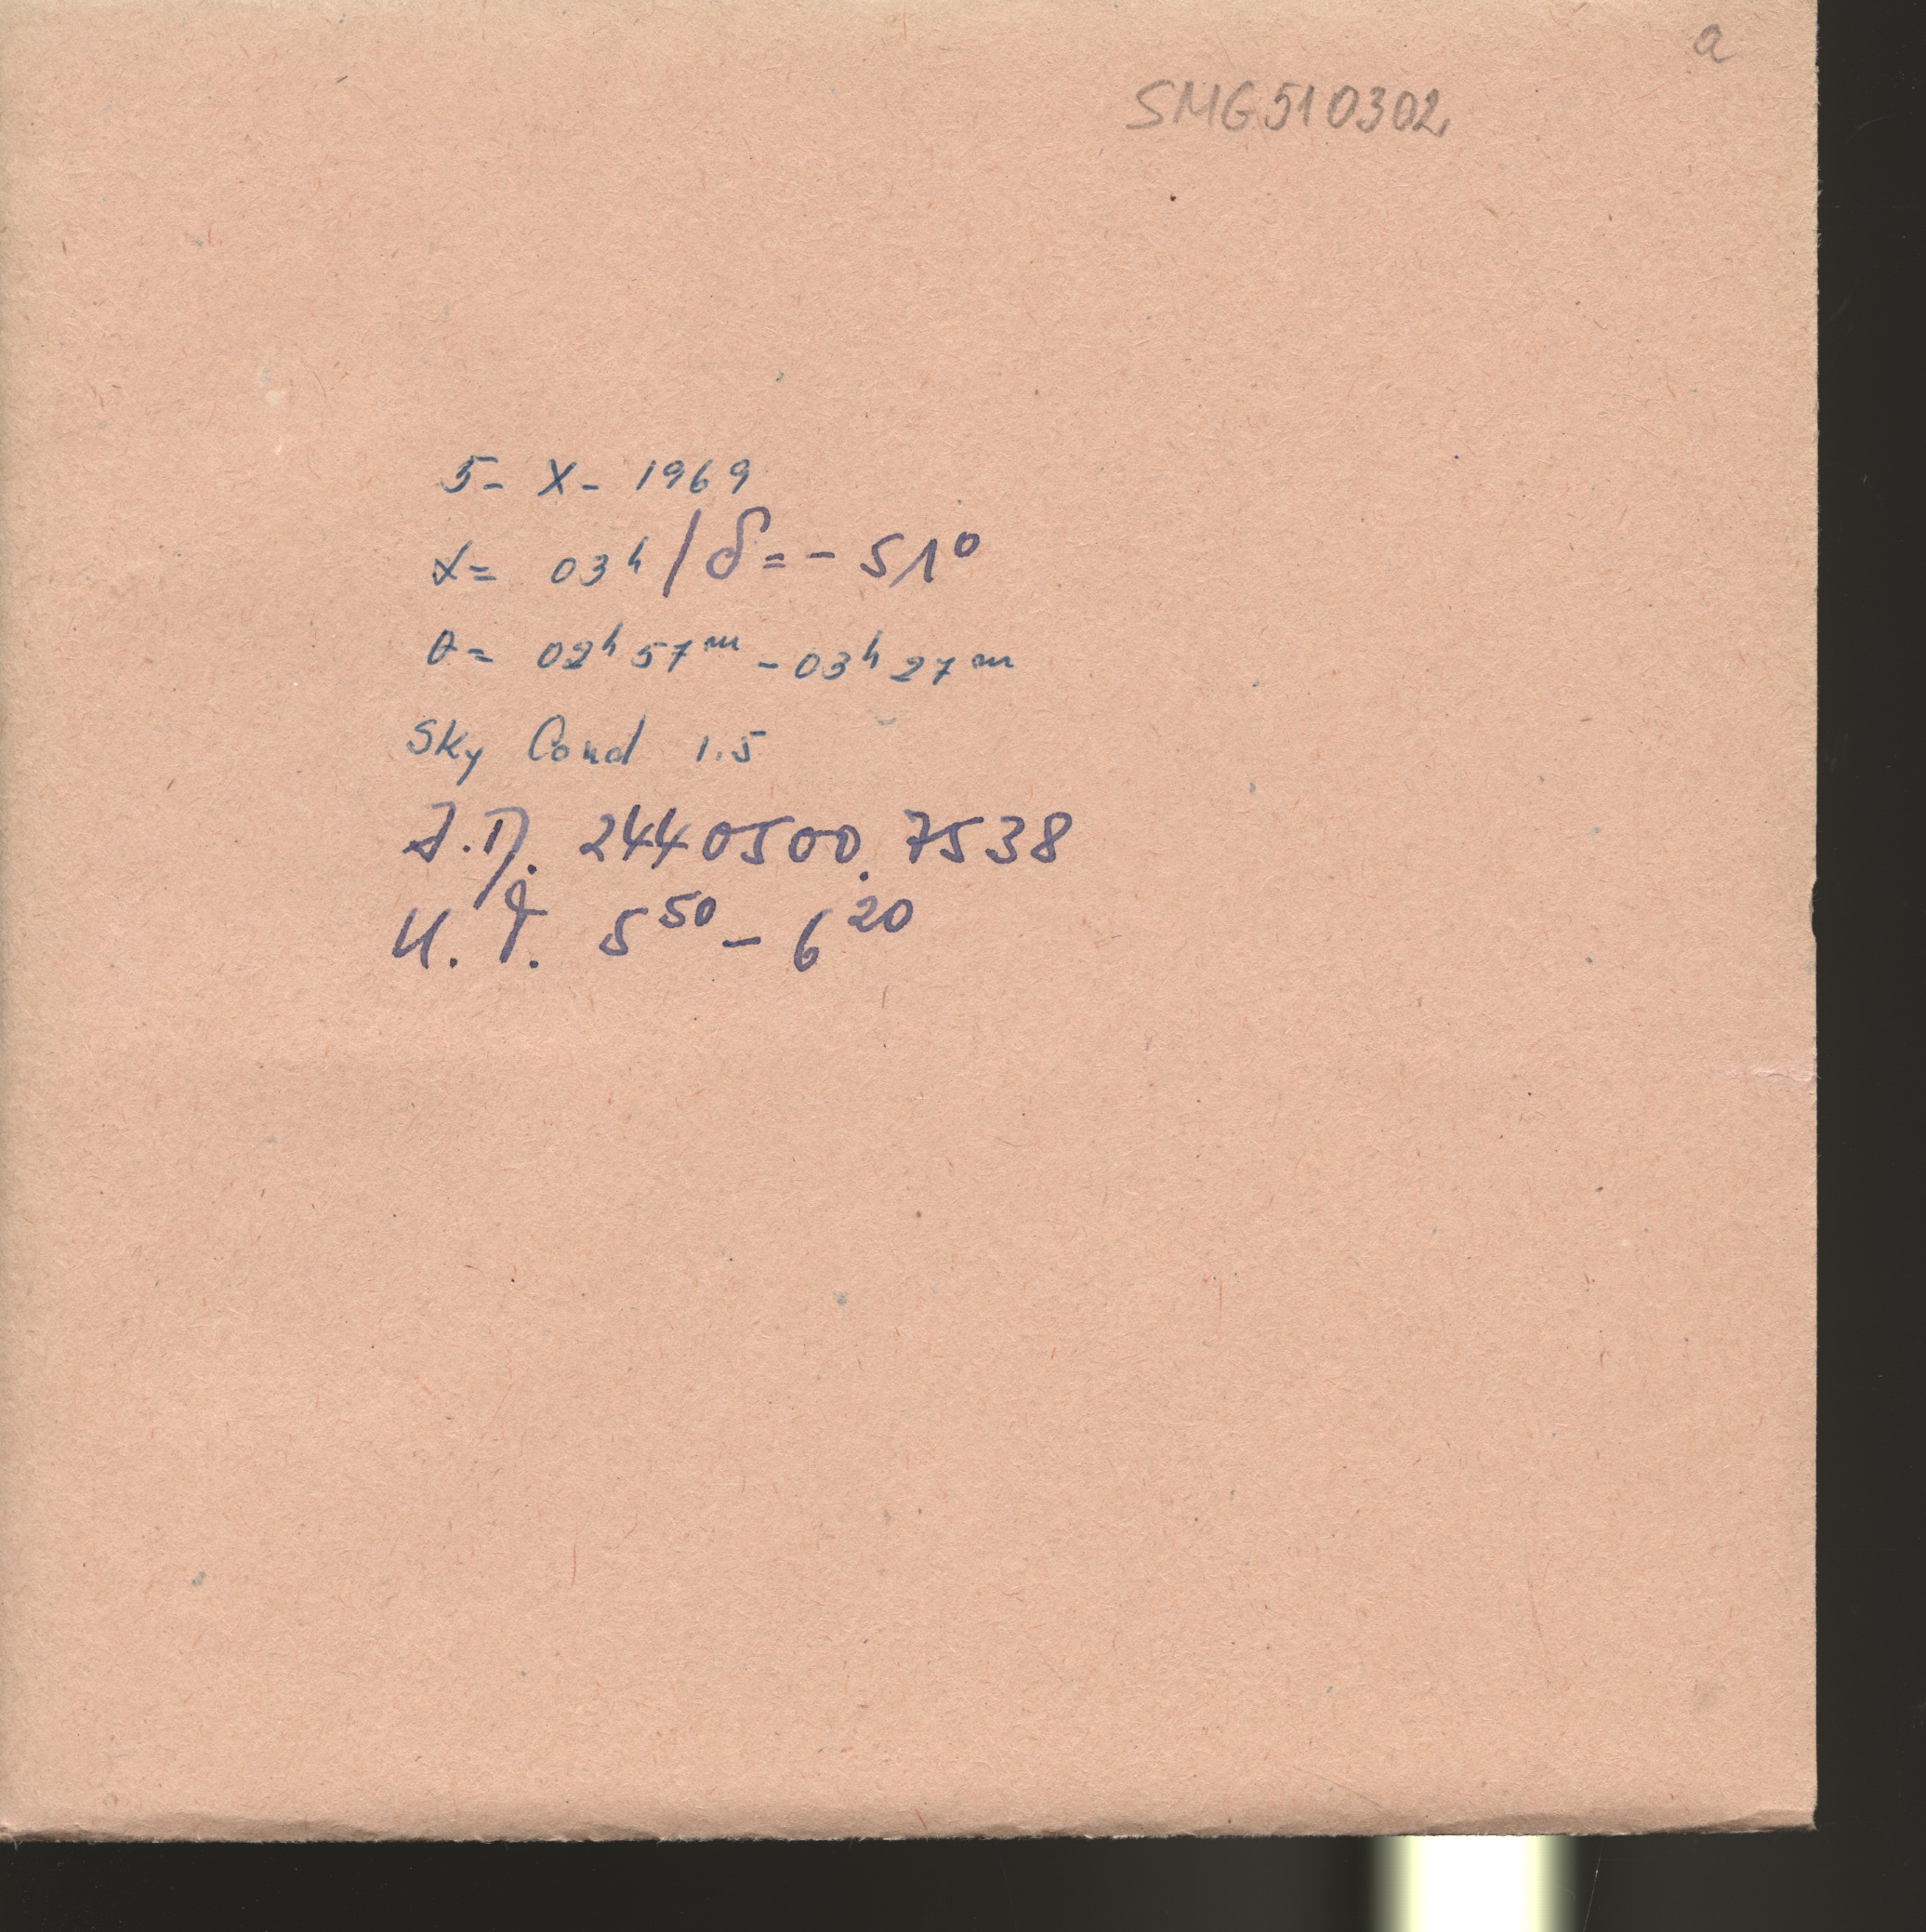 a
SMG510302
5- X- 1969
α= 03ʰ / δ= - 51⁰
θ= 02ʰ 57ᵐ - 03ʰ 27ᵐ
Sky Cond 1.5
J.D. 2440500.7538
U.T. 5⁵⁰ - 6²⁰